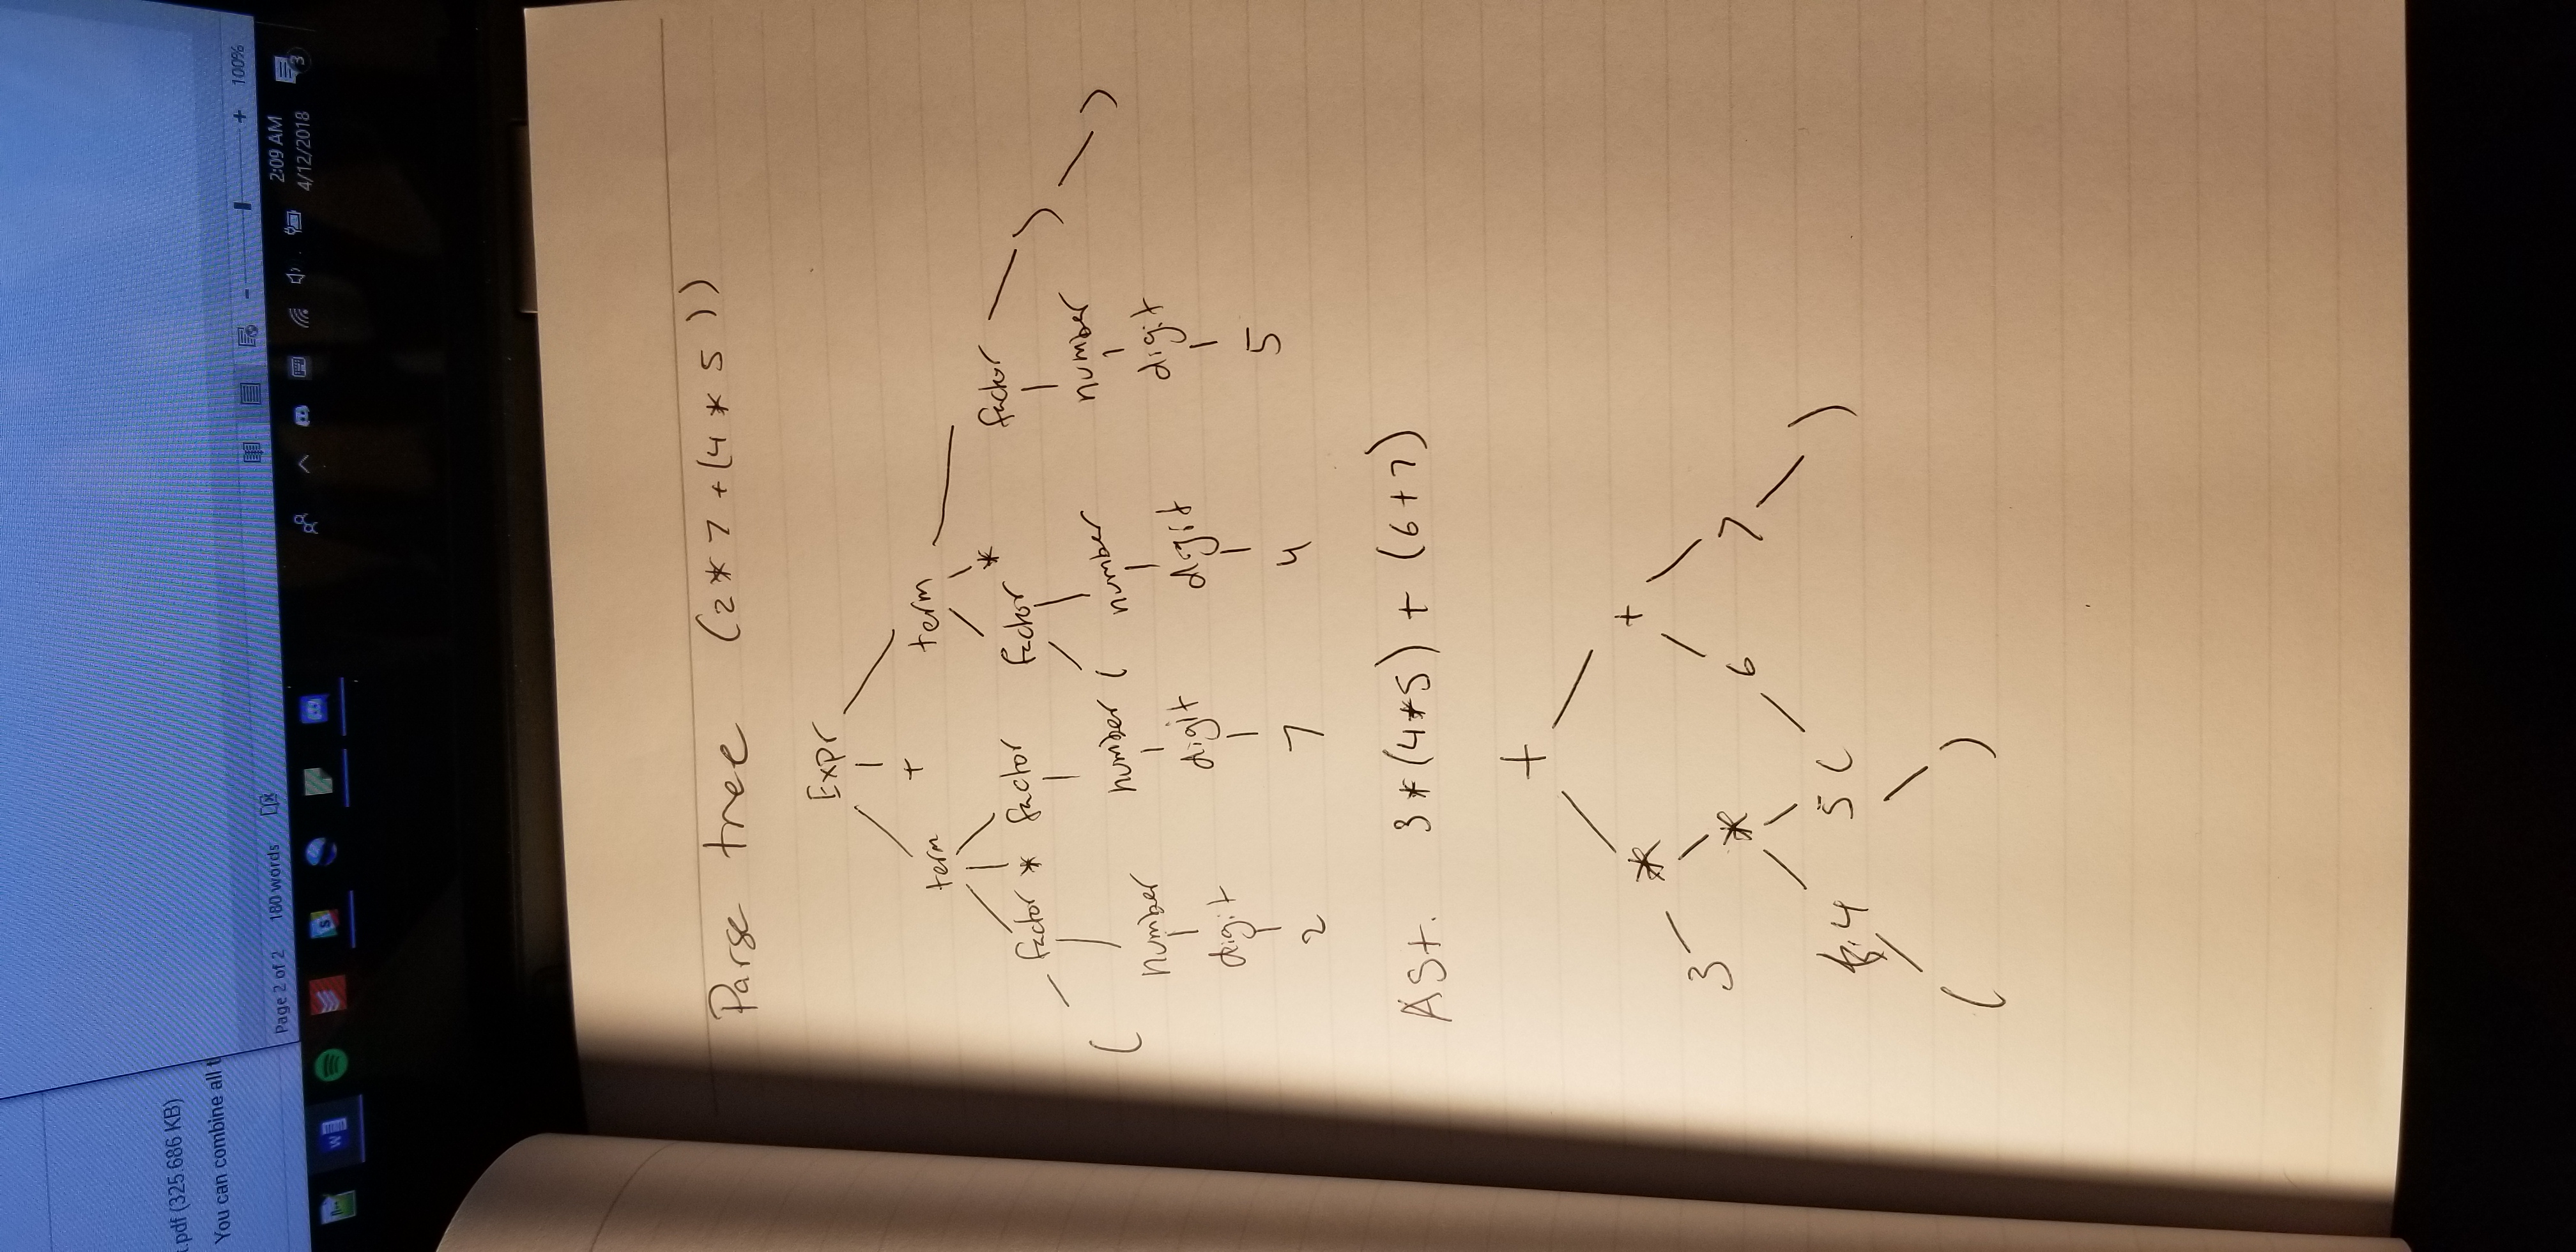 t.pdf (325.686 KB)
You can combine all t
Page 2 of 2 180 words
100%
2:09 AM
4/12/2018
3
Parse tree (2*7+(4*5))
Expr
+
term term
factor * factor factor * factor )
( number ( number number )
number digit digit digit
digit 7 4 5
2
ASt. 3*(4*5) + (6+7)
+
* +
3
* 6 7
4 5 ( )
( )